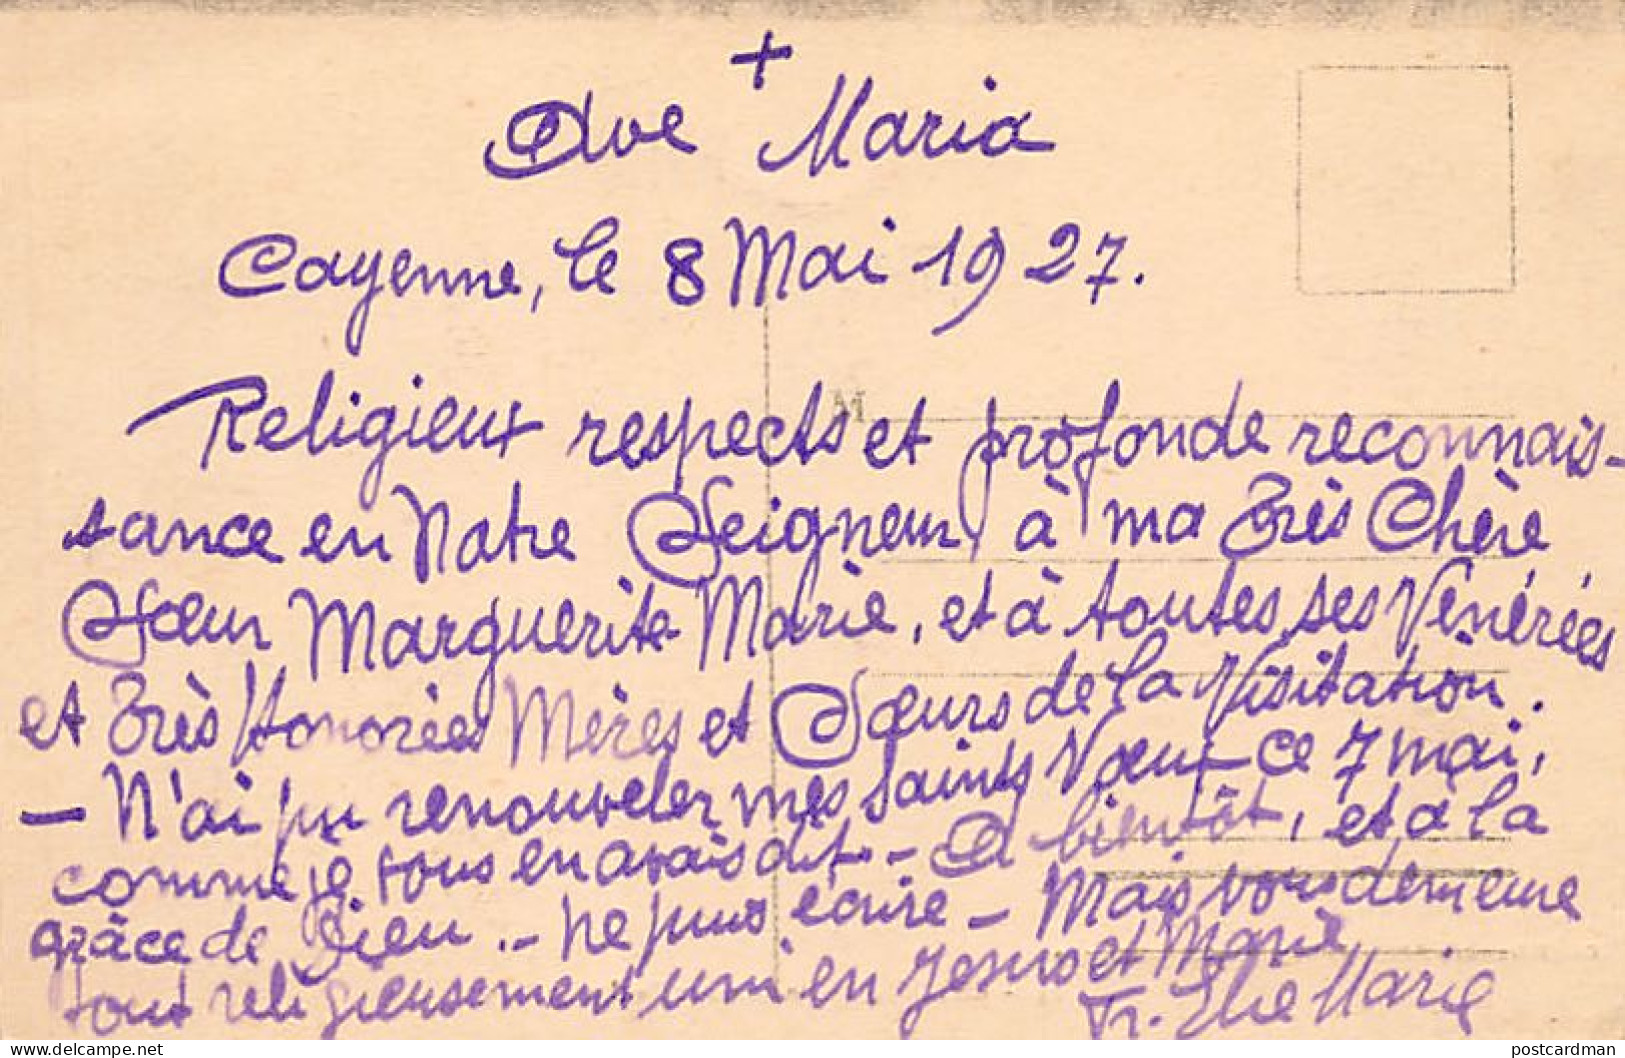 +
Ave Maria
Cayenne, le 8 Mai 1927.
M
Religieux respects et profonde reconnais-
sance en Notre Seigneur, à ma Très Chère
Sœur Marguerite Marie, et à toutes ses Vénérées
et Très Honorées Mères et Sœurs de la Visitation.
— N'ai pu renouveler mes saints Vœux ce 7 mai,
comme je vous en avais dit. - A bientôt, et à la
grâce de Dieu. - Ne puis écrire - Mais vous demeure
tout religieusement uni en Jesus et Marie
Fr. Elie Marie
delcampe.net
postcardman